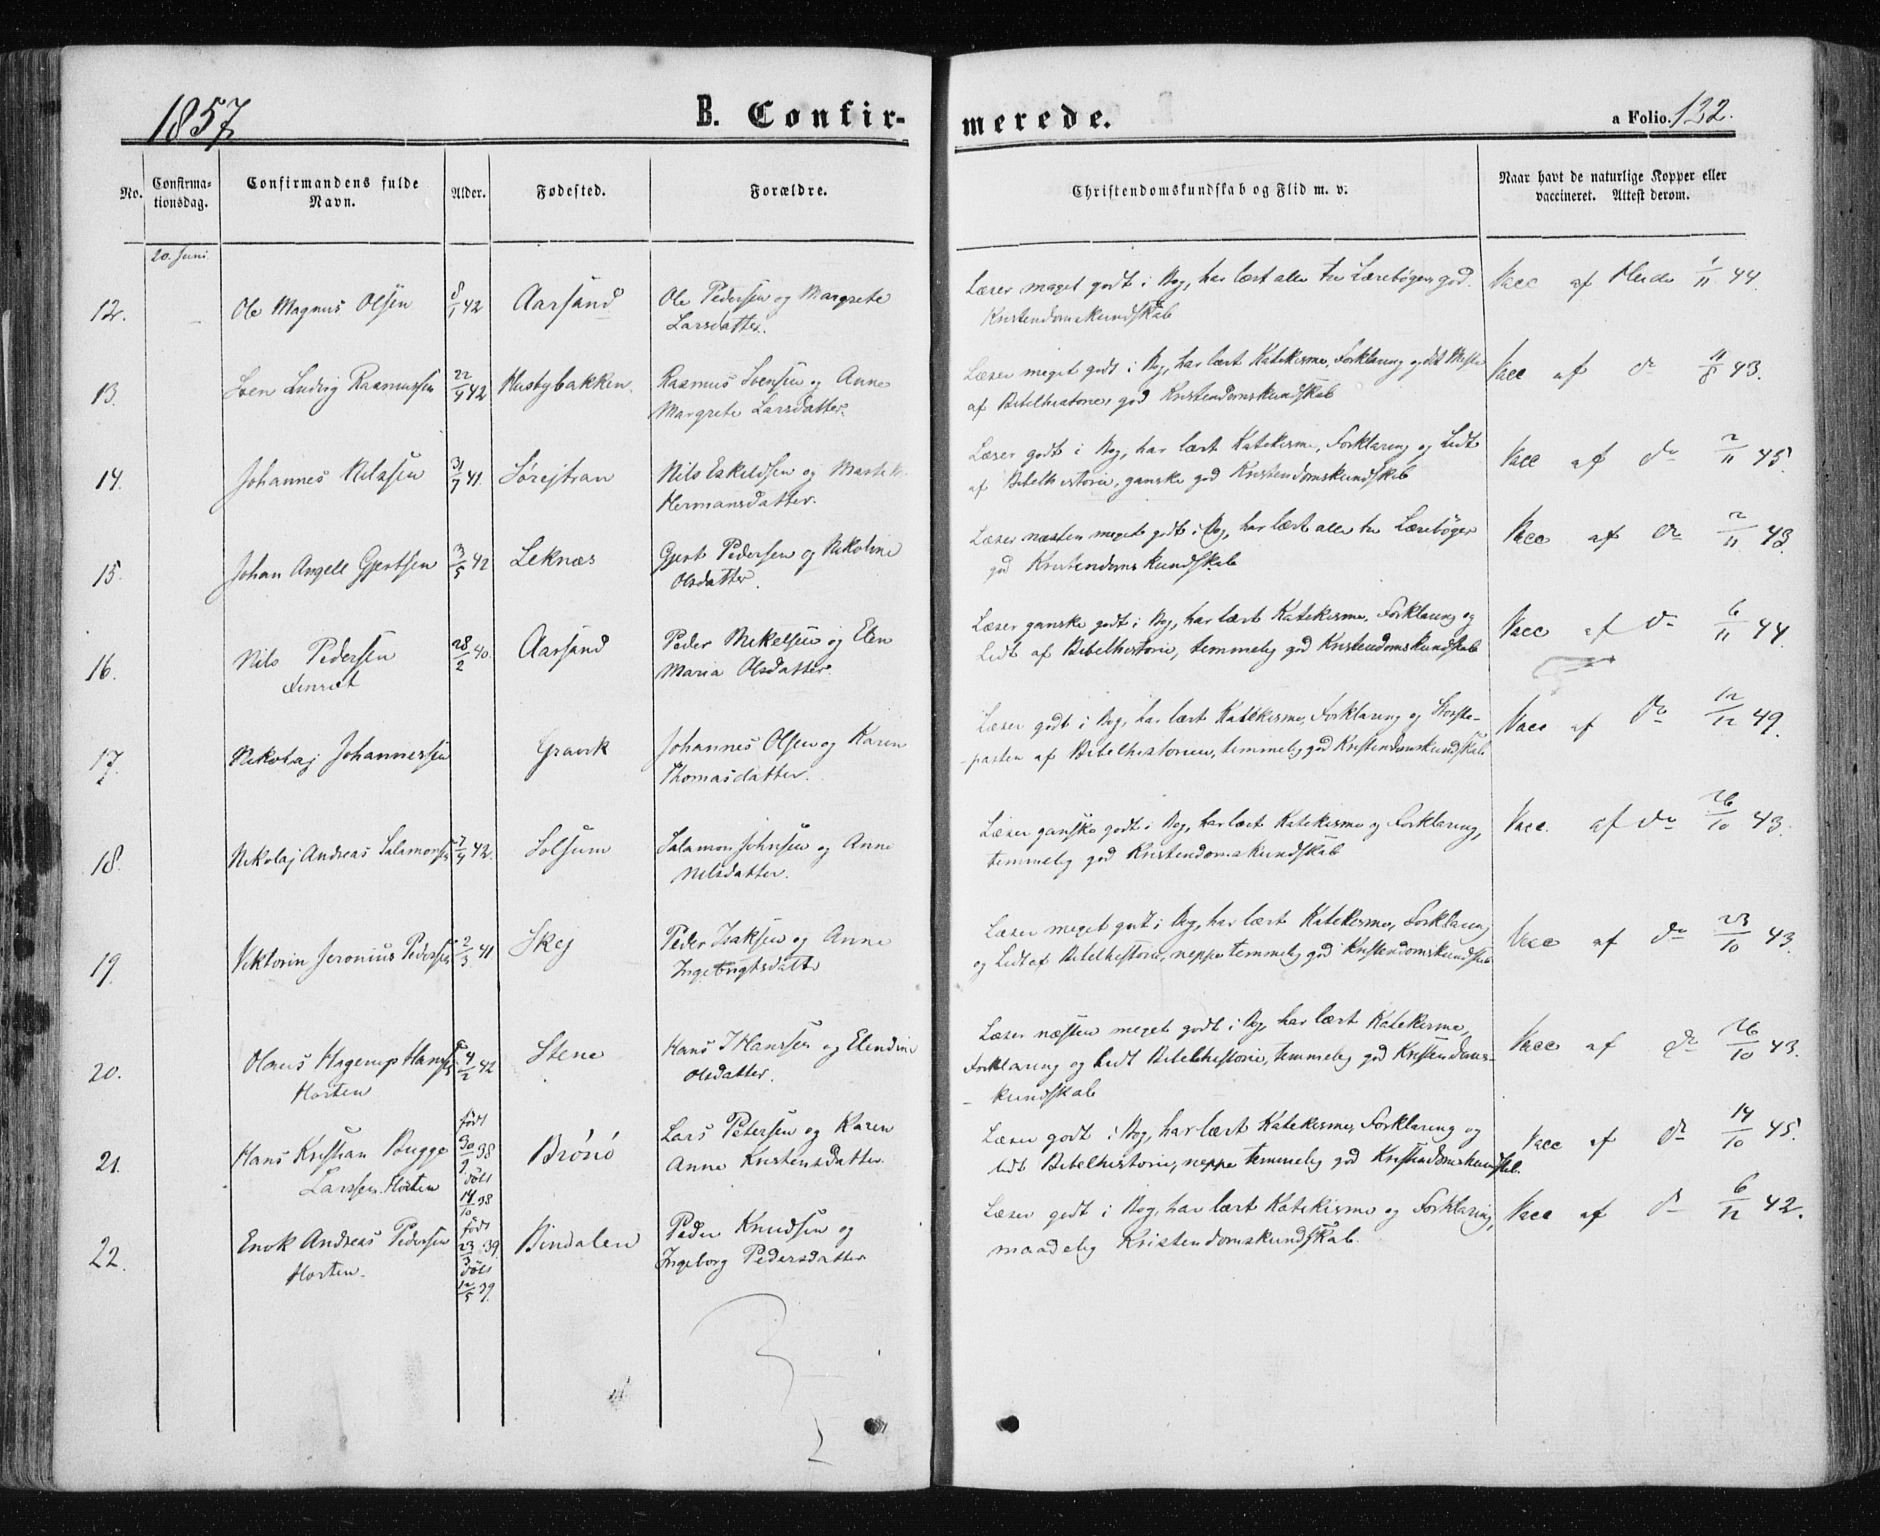 1857
B. Confir-
merede.
a Folio. 132.
No.
Confirma-
tionsdag.
Confirmandens fulde
Navn.
Alder.
Fødested.
Forældre.
Christendomskundskab og Flid m. v.
Naar havt de naturlige Kopper eller
vaccineret. Attest derom.
20. Juni.
12. Ole Magnus Olsen 8/1 42 Aarsand Ole Pedersen og Margrete
Larsdatter.
Læser meget godt i Bog, har lært alle tre Lærebøger, god
Kristendomskundskab
Vacc af 1/11 44.
13. Sven Ludvig Rasmussen 22/4 42 Hustybakken Rasmus Svensen og Anne
Margrete Larsdatter.
Læser meget godt i Bog, har lært Katekisme, Forklaring og det Meste
af Bibelhistorien, god Kristendomskundskab
Vacc af do 11/8 43.
14. Johannes Nilssen 31/7 41. Sørejstran Nils Eskildsen og
Hermansdatter.
Læser godt i Bog, har lært Katekisme, Forklaring og Lidt
af Bibelhistorie, ganske god Kristendomskundskab
Vacc af do 2/11 45.
15. Johan Angell Gjertsen 3/5 42 Leknæs Gjert Pedersen og Nikoline
Olsdatter.
Læser næsten meget godt i Bog, har lært alle tre Lærebøger
god Kristendomskundskab
Vacc af do 2/11 43.
16. Nils Pedersen 28/2 40. Aarsand Peder Mikelsen og Elen
Maria Olsdatter.
Læser ganske godt i Bog, har lært Katekisme, Forklaring og
Lidt af Bibelhistorie, temmelig god Kristendomskundskab
Vacc af do 6/11 44.
17. Nikolaj Johannessen Gravrk Johannes Olsen og Karen
Thomasdatter.
Læser godt i Bog, har lært Katekisme, Forklaring og Største-
parten af Bibelhistorien, temmelig god Kristendomskundskab
Vacc af do 12/12 49.
18. Nikolaj Andreas Salamonsen 7/4 42. Solsum Salamon Johnsen og Anne
Nilsdatter.
Læser ganske godt i Bog, har lært Katekisme og Forklaring,
temmelig god Kristendomskundskab
Vacc. af do 26/10 43.
19. Viktorin Jeronius Pedersen 2/3 41 Skej Peder Isaksen og Anne
Ingebrigtsdattr
Læser meget godt i Bog, har lært Katekisme, Forklaring
og Lidt af Bibelhistorie, neppe temmelig god Kristendomskundskab
Vacc af do 23/10 43.
20. Olaus Hagerup Hanssen 4/2 42 Stene Hans J Hanssen og Elendine
Horten Olsdatter.
Læser næsten meget godt i Bog, har lært Katekisme,
Forklaring og Lidt Bibelhistorie, temmelig god Kristendoms-
kundskab
Vacc af do 26/10 43.
21. Hans Kristian Bugge født 30/9 38 døbt 14/10 38 Brønø Lars Petersen og Karen
Larssen Horten Anne Kristensdatter.
Læser godt i Bog, har lært Katekisme, Forklaring og
lidt Bibelhistorie, neppe temmelig god Kristendomskundskab.
Vacc af do 14/10 45.
22. Enok Andreas Pedersen født 23/3 39. døbt 12/5 39. Bindalen Peder Knudsen og
Horten. Ingeborg Pedersdatter
Læser godt i Bog, har lært Katekisme og Forklaring,
maadelig Kristendomskundskab.
Vacc af do 6/12 42.